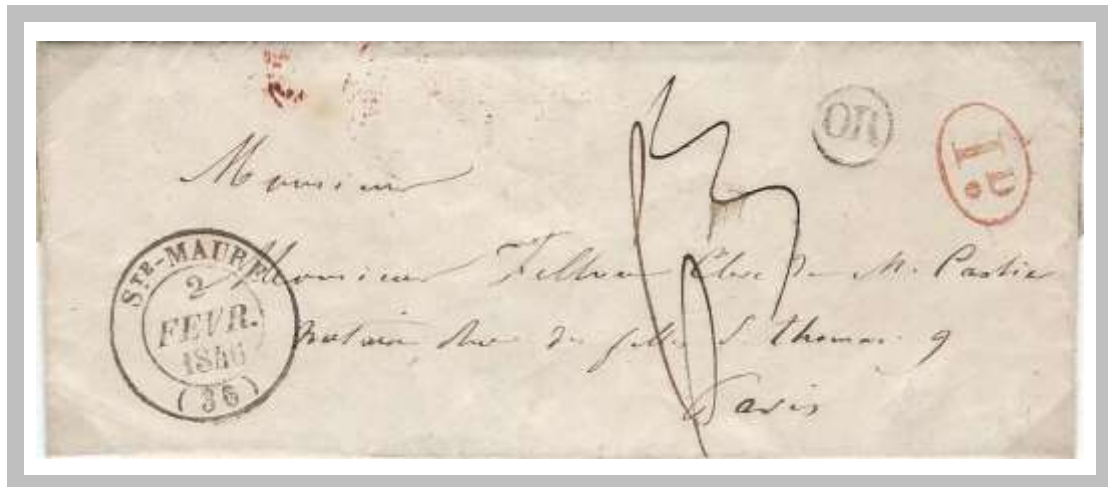 OR
1D
Monsieur
Monsieur Clerc de M. Castier
Notaire Rue des filles S. Thomas 9
Paris
STE-MAURE
2
FEVR.
1846
(36)